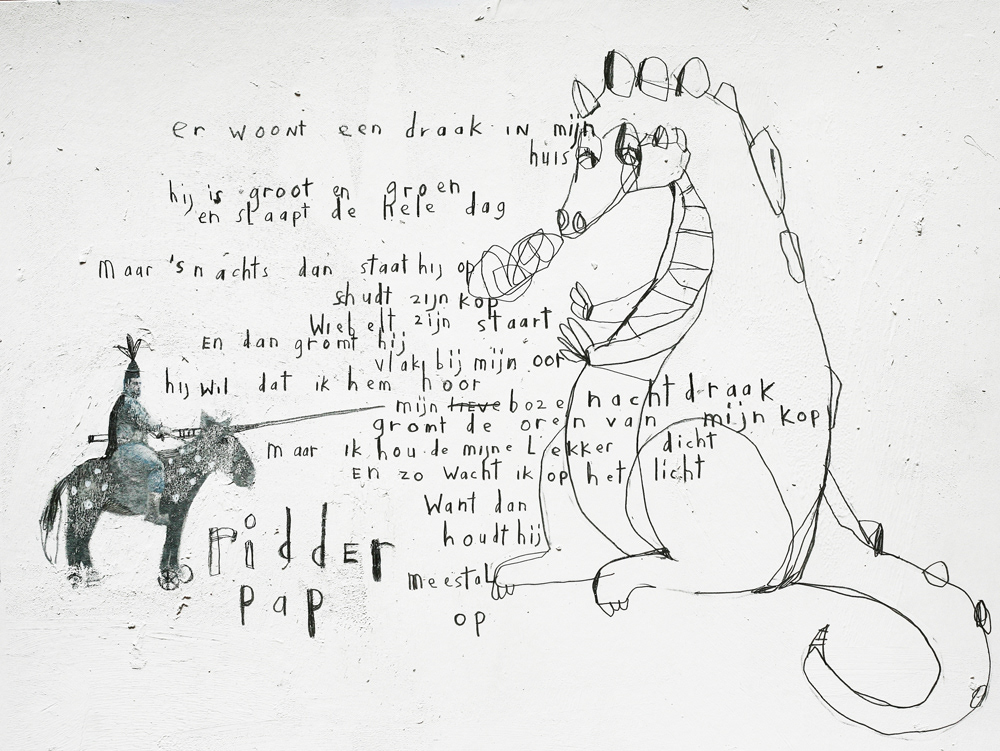 er woont een draak in mijn
huis
hij is groot en groen
en slaapt de hele dag
maar 's nachts dan staat hij op
schudt zijn kop
Wiebelt zijn staart
En dan gromt hij
vlak bij mijn oor
hij wil dat ik hem hoor
mijn lieve boze nachtdraak
gromt de oren van mijn kop
maar ik hou de mijne Lekker dicht
En zo wacht ik op het licht
Want dan
houdt hij
meestal
op
ridder
pap